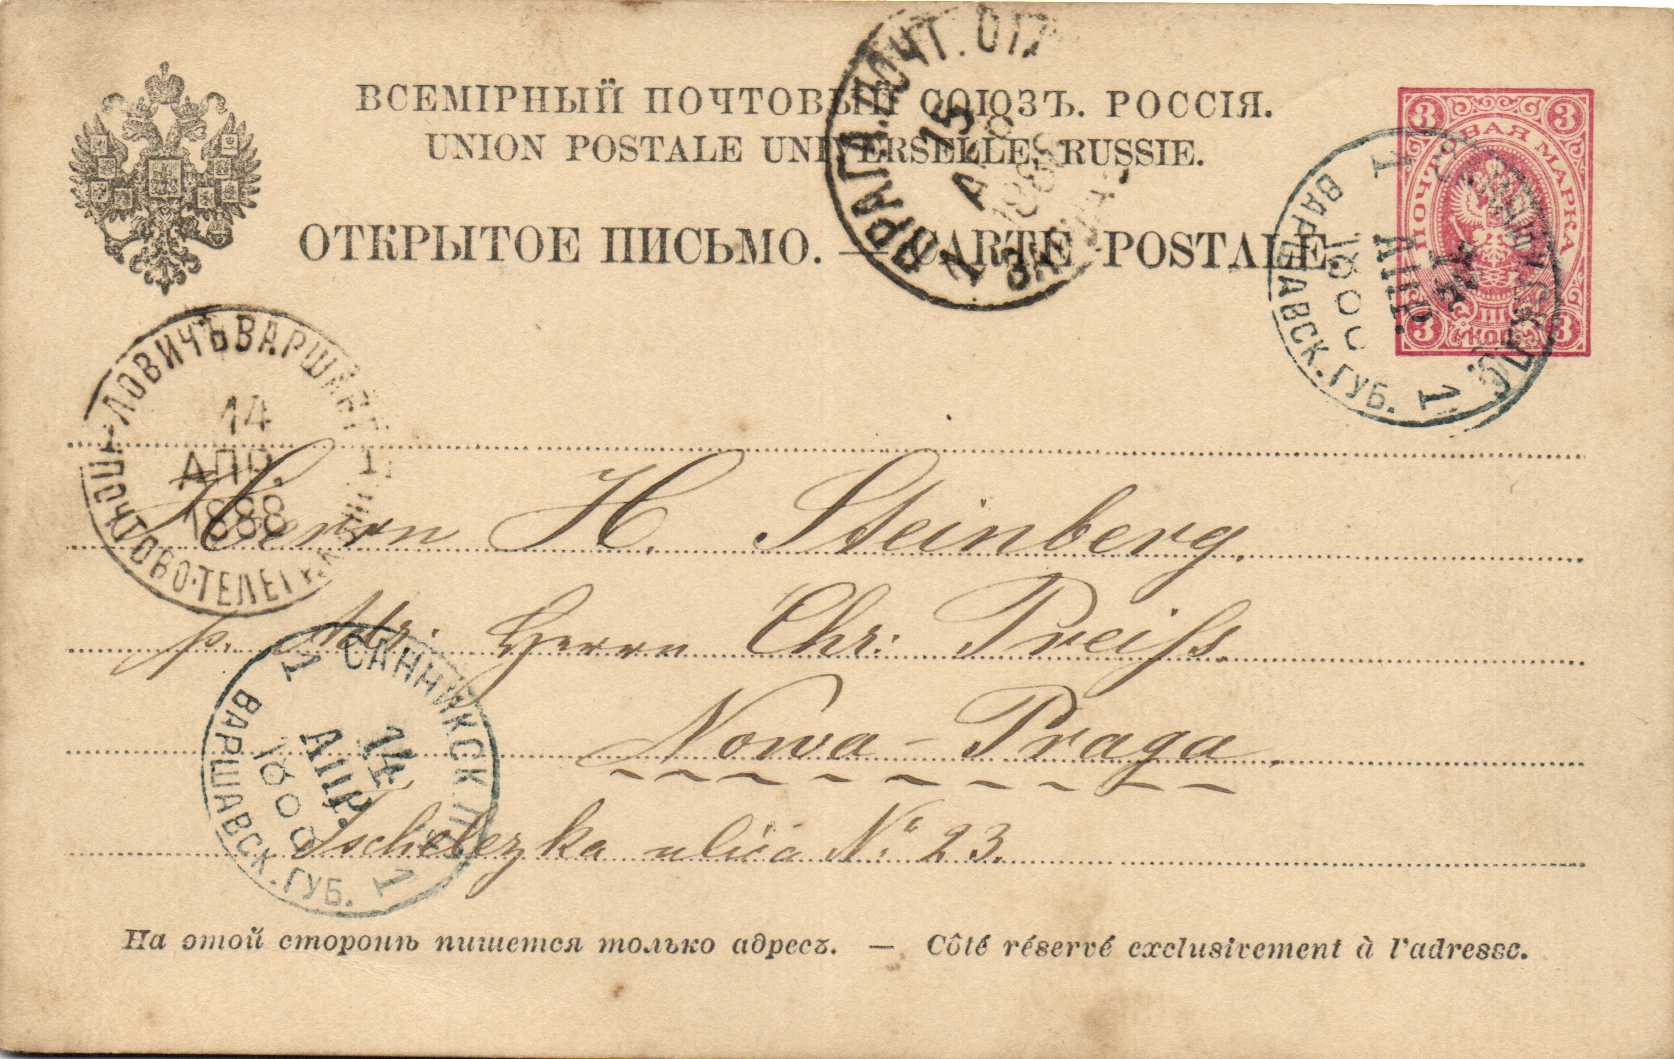 ВСЕМІРНЫЙ ПОЧТОВЫЙ СОЮЗЪ. РОССІЯ.
UNION POSTALE UNIVERSELLE, RUSSIE.
ОТКРЫТОЕ ПИСЬМО. — CARTE POSTALE.
3 3
ПОЧТОВАЯ МАРКА
3 КОП. 3
ПРАГА. ПОЧТ. ОТД
15
АПР
1888
1
1
АПР.
ВАРШАВСК. ГУБ.
1
ЛОВИЧЪ ВАРШАВ
14
АПР.
1888
ПОЧТОВО-ТЕЛЕГР
Herrn H. Steinberg.
p. Adr. Herrn Chr: Preiss.
Nowa-Praga.
Tschelezka ulica No 23.
1 САННИКСК П
14
АПР.
ВАРШАВСК. ГУБ. 1
На этой сторонѣ пишется только адресъ. — Côté réservé exclusivement à l'adresse.